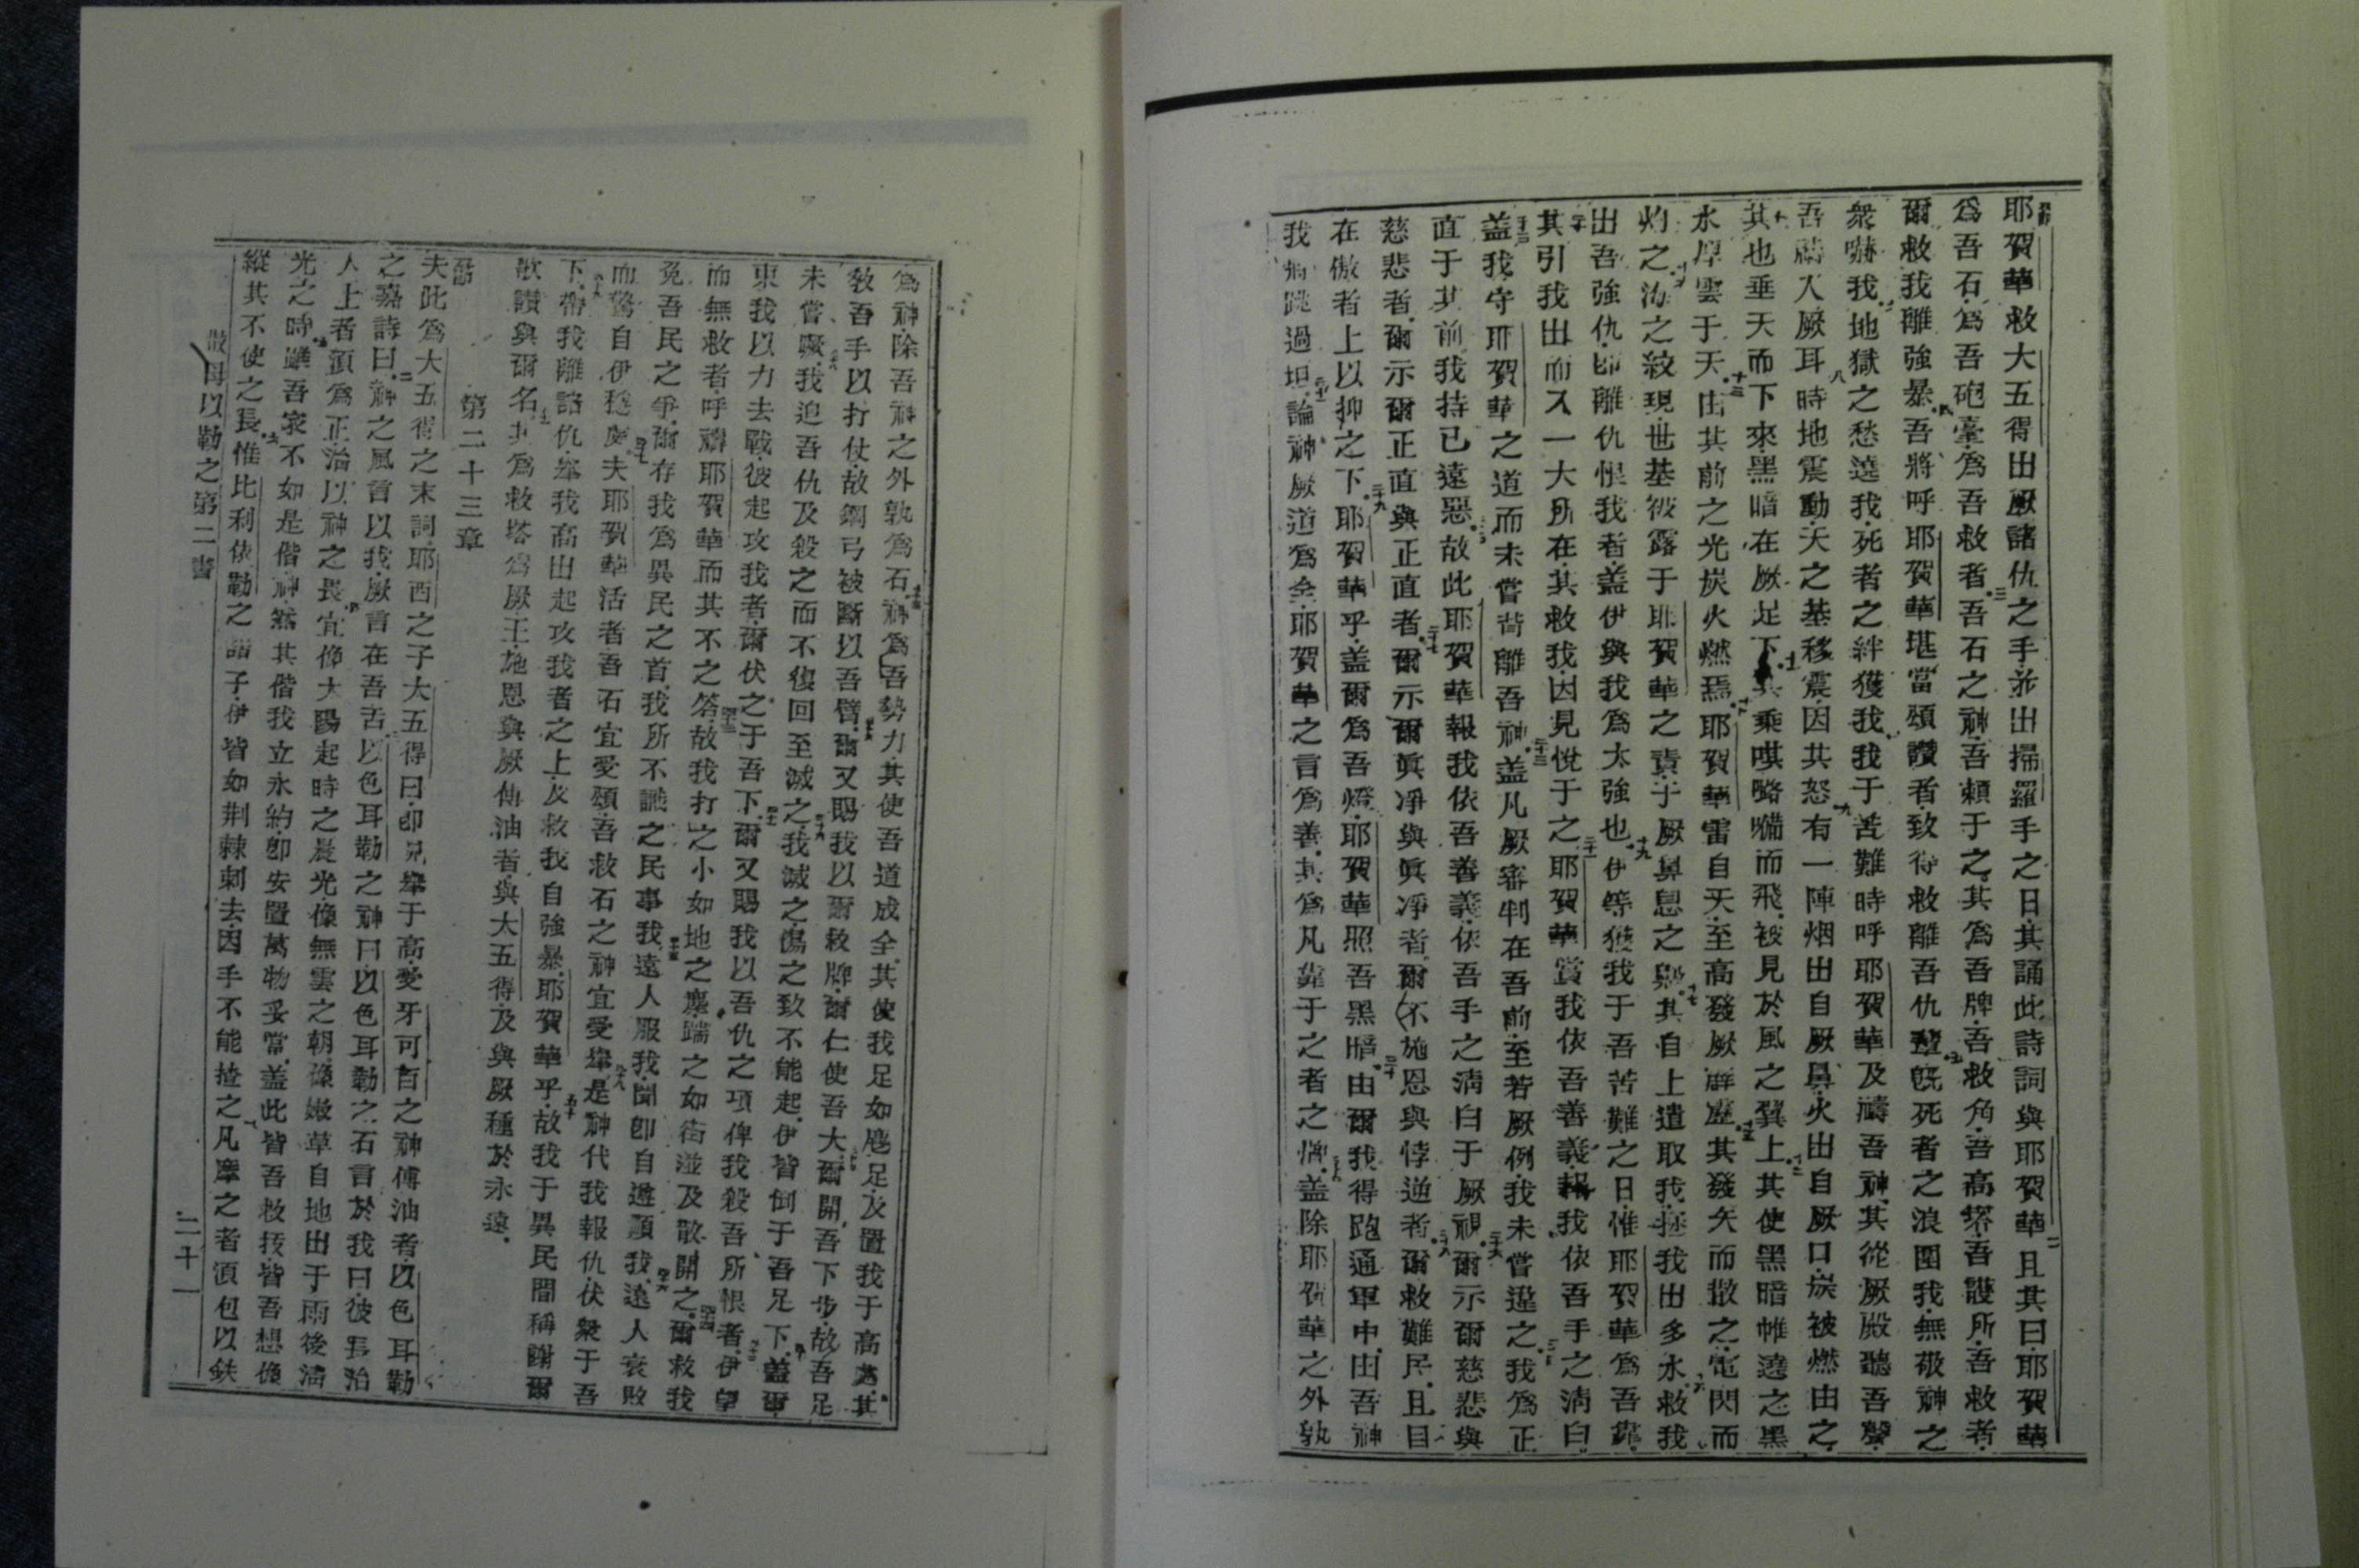 耶賀華救大五得出厥諸仇之手並出掃羅手之日其誦此詩詞與耶賀華且其曰耶賀華
爲吾石爲吾砲臺爲吾救者吾石之神吾賴于之其爲吾牌吾救角吾高塔吾護所吾救者
爾救我離強暴吾將呼耶賀華堪當頌讚者致得救離吾仇旣死者之浪圍我無敬神之
衆嚇我地獄之愁遶我死者之絆獲我我于苦難時呼耶賀華及禱吾神其從厥殿聽吾聲
吾禱入厥耳時地震動天之基移震因其怒有一陣烟出自厥鼻火出自厥口炭被燃由之
其也垂天而下來黑暗在厥足下其乘𠵽咯𡅖而飛被見於風之翼上其使黑暗帷遶之黑
水厚雲于天由其前之光炭火燃焉耶賀華雷自天至高發厥霹靂其發矢而散之電閃而
灼之海之紋現世基被露于耶賀華之責于厥鼻息之 其自上遣取我拯我出多水救我
出吾強仇卽離仇恨我者蓋伊與我爲太強也伊等獲我于吾苦難之日惟耶賀華爲吾靠
其引我出而入一大所在其救我因見悅于之耶賀華賞我依吾善義報我依吾手之淸白
蓋我守耶賀華之道而未嘗背離吾神蓋凡厥審判在吾前至若厥例我未嘗違之我爲正
直于其前我持已遠惡故此耶賀華報我依吾善義依吾手之淸白于厥視爾示爾慈悲與
慈悲者爾示爾正直與正直者爾示爾眞凈與眞凈者爾不施恩與悖逆者爾救難民且目
在傲者上以抑之下耶賀華乎蓋爾爲吾燈耶賀華照吾黑暗由爾我得跑通軍中由吾神
我 跳過垣論神厥道爲全耶賀華之言爲善其爲凡靠于之者之牌蓋除耶賀華之外孰
爲神除吾神之外孰爲石神爲吾勢力其使吾道成全其使我足如麀足及置我于高處其
敎吾手以打仗故鋼弓被斷以吾臂爾又賜我以爾救牌爾仁使吾大爾開吾下步故吾足
未嘗蹶我追吾仇及殺之而不復回至滅之我滅之傷之致不能起伊皆倒于吾足下蓋爾
束我以力去戰彼起攻我者爾伏之于吾下爾又賜我以吾仇之項俾我殺吾所恨者伊望
而無救者呼禱耶賀華而其不之答故我打之小如地之塵踹之如街 及散開之爾救我
免吾民之爭爾存我爲異民之首我所不識之民事我遠人服我聞卽自遜順我遠人衰敗
而驚自伊穩處夫耶賀華活者吾石宜受頌吾救石之神宜受舉是神代我報仇伏衆于吾
下帶我離諸仇舉我高出起攻我者之上及救我自強暴耶賀華乎故我于異民間稱謝爾
歌讚與爾名其爲救塔爲厥王施恩與厥傅油者與大五得及與厥種於永遠
第二十三章
夫此爲大五得之末詞耶西之子大五得曰卽兄舉于高受牙可百之神傅油者以色耳勒
之嘉詩曰神之風言以我厥言在吾舌以色耳勒之神曰以色耳勒之石言於我曰彼長治
人上者須爲正治以神之畏宜像太陽起時之晨光像無雲之朝像嫩草自地出于雨後淸
光之時雖吾家不如是偕神然其偕我立永約卽安置萬物妥當蓋此皆吾救技皆吾想像
縱其不使之長惟比利依勒之諸子伊皆如荆棘刺去因手不能揸之凡摩之者須包以鉄
撒母以勒之第二書　二十一